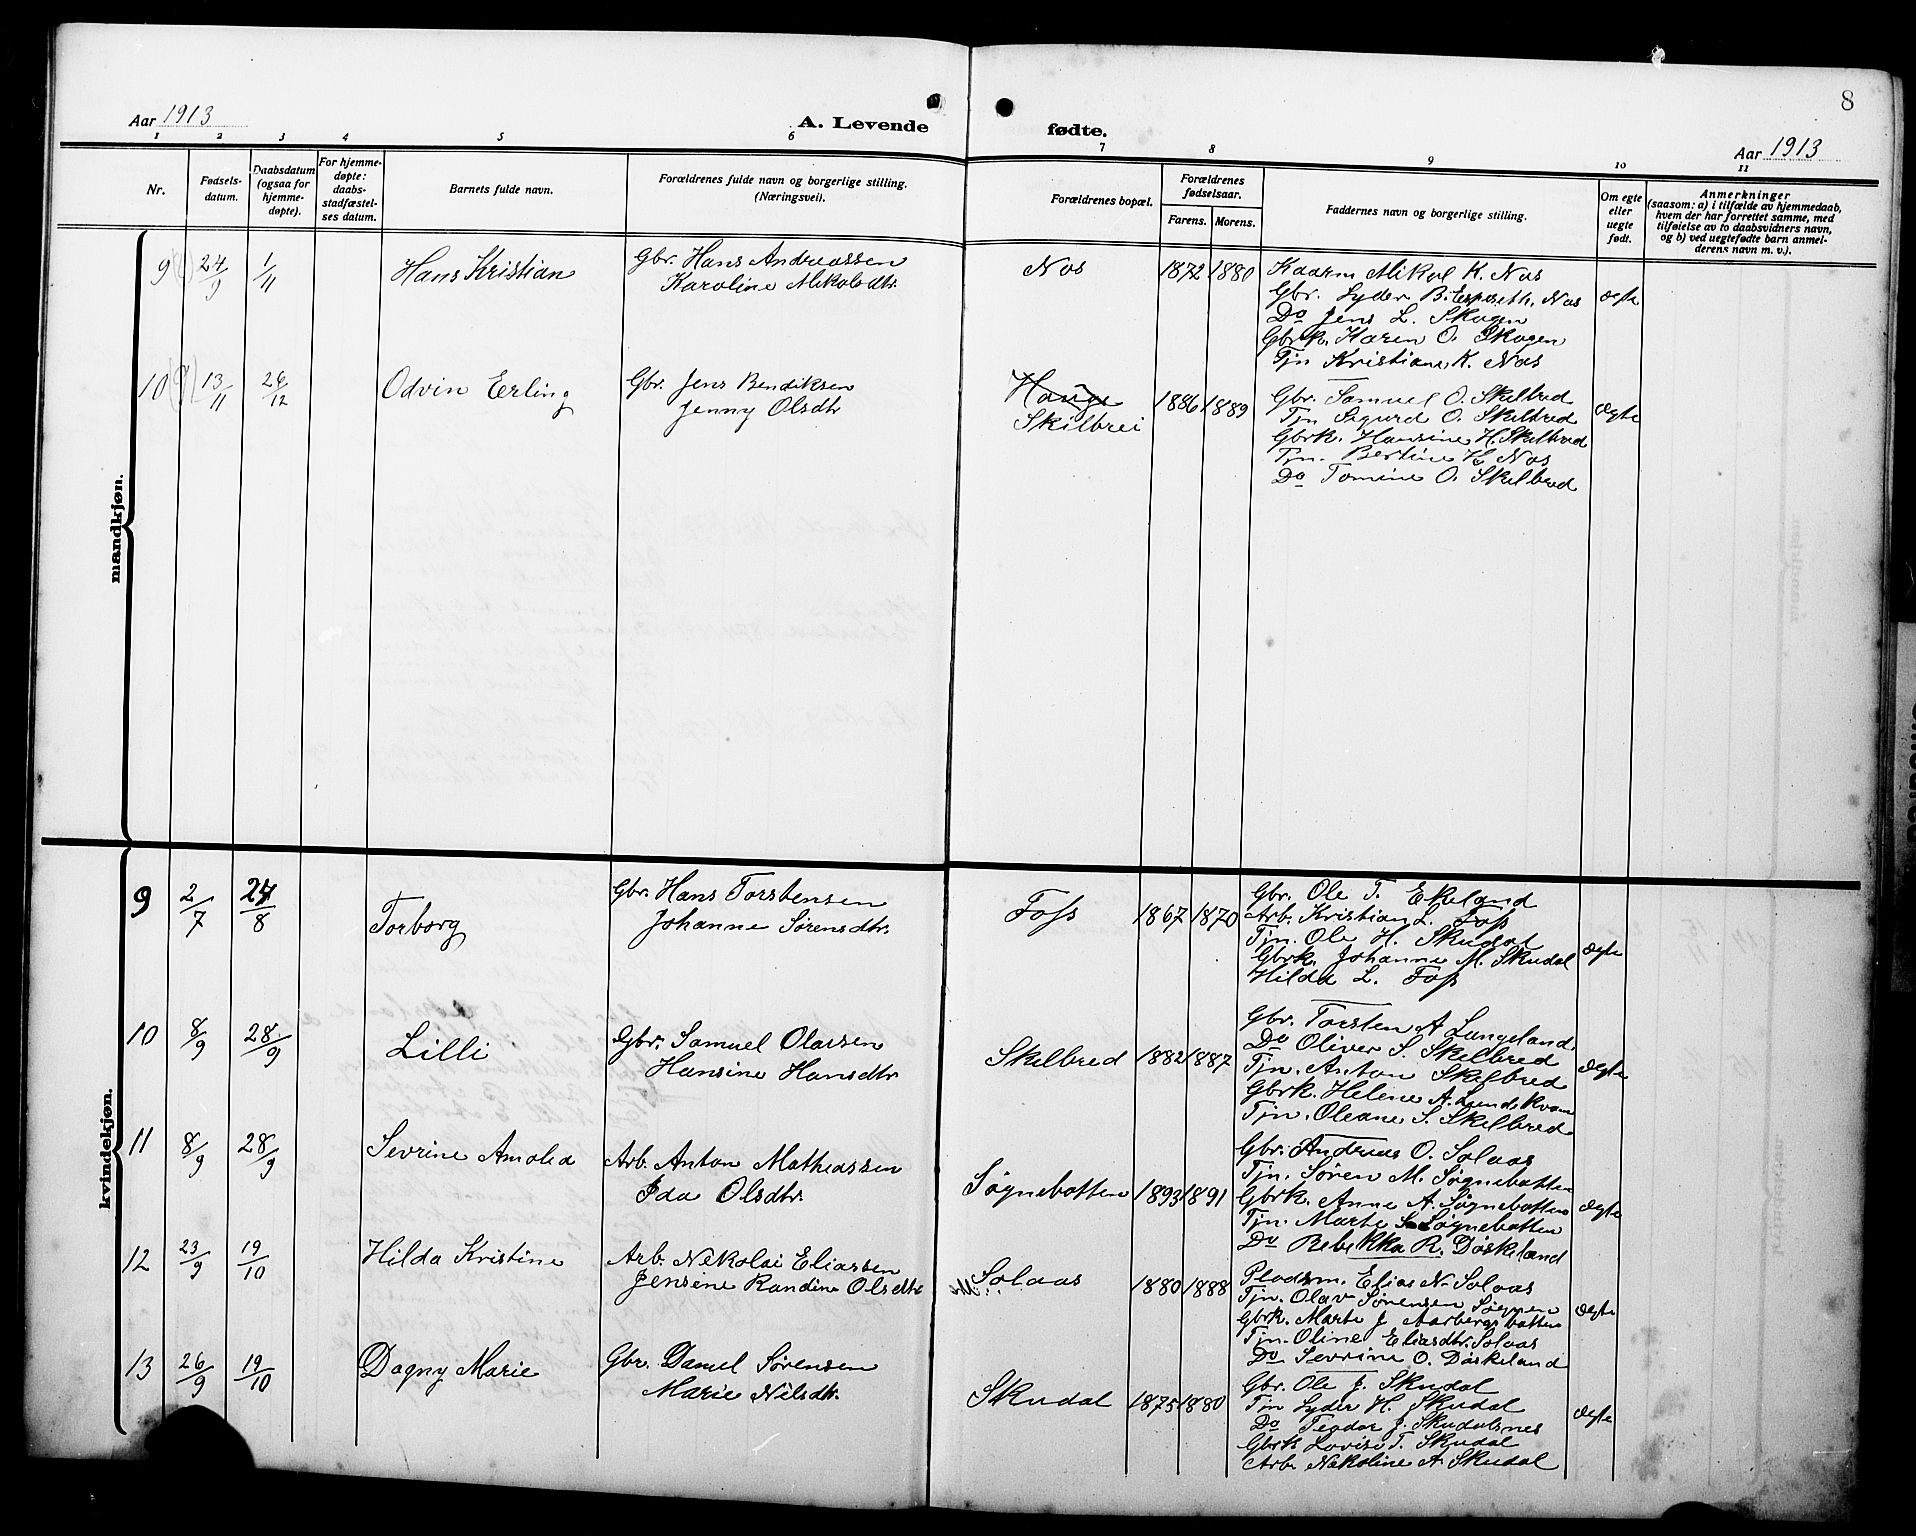 8
Aar 1913
A. Levende
fødte.
Aar 1913
1 2 3 4 5 6 7 8 9 10 11
Nr.
Fødsels-
datum.
Daabsdatum
(ogsaa for
hjemme-
døpte).
For hjemme-
døpte:
daabs-
stadfæstel-
ses datum.
Barnets fulde navn.
Forældrenes fulde navn og borgerlige stilling.
(Næringsvei).
Forældrenes bopæl.
Forældrenes
fødselsaar.
Farens. Morens.
Faddernes navn og borgerlige stilling.
Om egte
eller
uegte
født.
Anmerkninger
(saasom: a) i tilfælde av hjemmedaab,
hvem der har forrettet samme, med
tilføielse av to daabsvidners navn,
og b) ved uegtefødte barn anmel-
derens navn m. v.).
mandkjøn.
9 24/9 1/11 Hans Kristian
Gbr. Hans Andreassen
Karoline Mikalsdtr.
Nos 1872 1880
Kaarm Mikal K. Nos
Gbr. Lyder B. Espeseth, Nos
Do Jens L. Skogen
Gbrk. Karen O. Skogen
Tjn Kristiane K. Nos
ægte
10 13/11 26/12 Odvin Erling
Gbr. Jens Bendiksen
Jenny Olsdtr
Hauge
Skilbrei
1886 1889
Gbr. Samuel O. Skelbred
Tjn Sigurd O. Skelbred
Gbrk. Hansine H. Skelbred
Tjn. Bertine H. Nos
Do Tomine O. Skelbred
ægte
kvindekjøn.
9 2/7 24/8 Torborg
Gbr. Hans Torstensen
Johanne Sørensdtr.
Foss 1867 1870
Gbr. Ole T. Ekeland
Arb. Kristian L. Foss
Tjn. Ole H. Skudal
Gbrk. Johanne M. Skudal
Hilda L. Foss
ægte
10 8/9 28/9 Lilli
Gbr. Samuel Olassen
Hansine Hansdtr
Skelbred 1882 1887
Gbr. Torsten A Langeland.
Do Oliver S. Skelbred
Tjn. Anton Skelbred
Gbrk. Helene A. Lundekvam
Tjn. Oleane S. Skelbred
ægte
11 8/9 28/9 Sevrine Amalia
Arb. Anton Mathiassen
Ida Olsdtr.
Søgnebotten 1893 1891
Gbr. Andreas O. Solaas
Tjn. Søren M. Søgnebotten
Gbrk. Anne A. Søgnebotten
Tjn. Marte S. Søgnebotten
Do Rebekka R. Døskeland
ægte
12 23/9 19/10 Hilda Kristine
Arb. Nekolai Eliassen
Jensine Randine Olsdtr
Solaas 1880 1888
Plodsm. Elias N. Solaas
Tjn. Olav Sørensen Søgnen
Gbrk. Marte J Aarbergsbotten
Tjn. Oline Eliasdtr. Solaas
Do Sevrine O. Døskeland
ægte
13 26/9 19/10 Dagny Marie
Gbr. Daniel Sørensen
Marie Nilsdtr.
Skudal 1875 1880
Gbr. Ole J. Skudal
Tjn Lyder H. Skudal
Do Teodor J. Skudalsnes
Gbrk Lovise T. Skudal
Arb. Nekoline A. Skudal
ægte